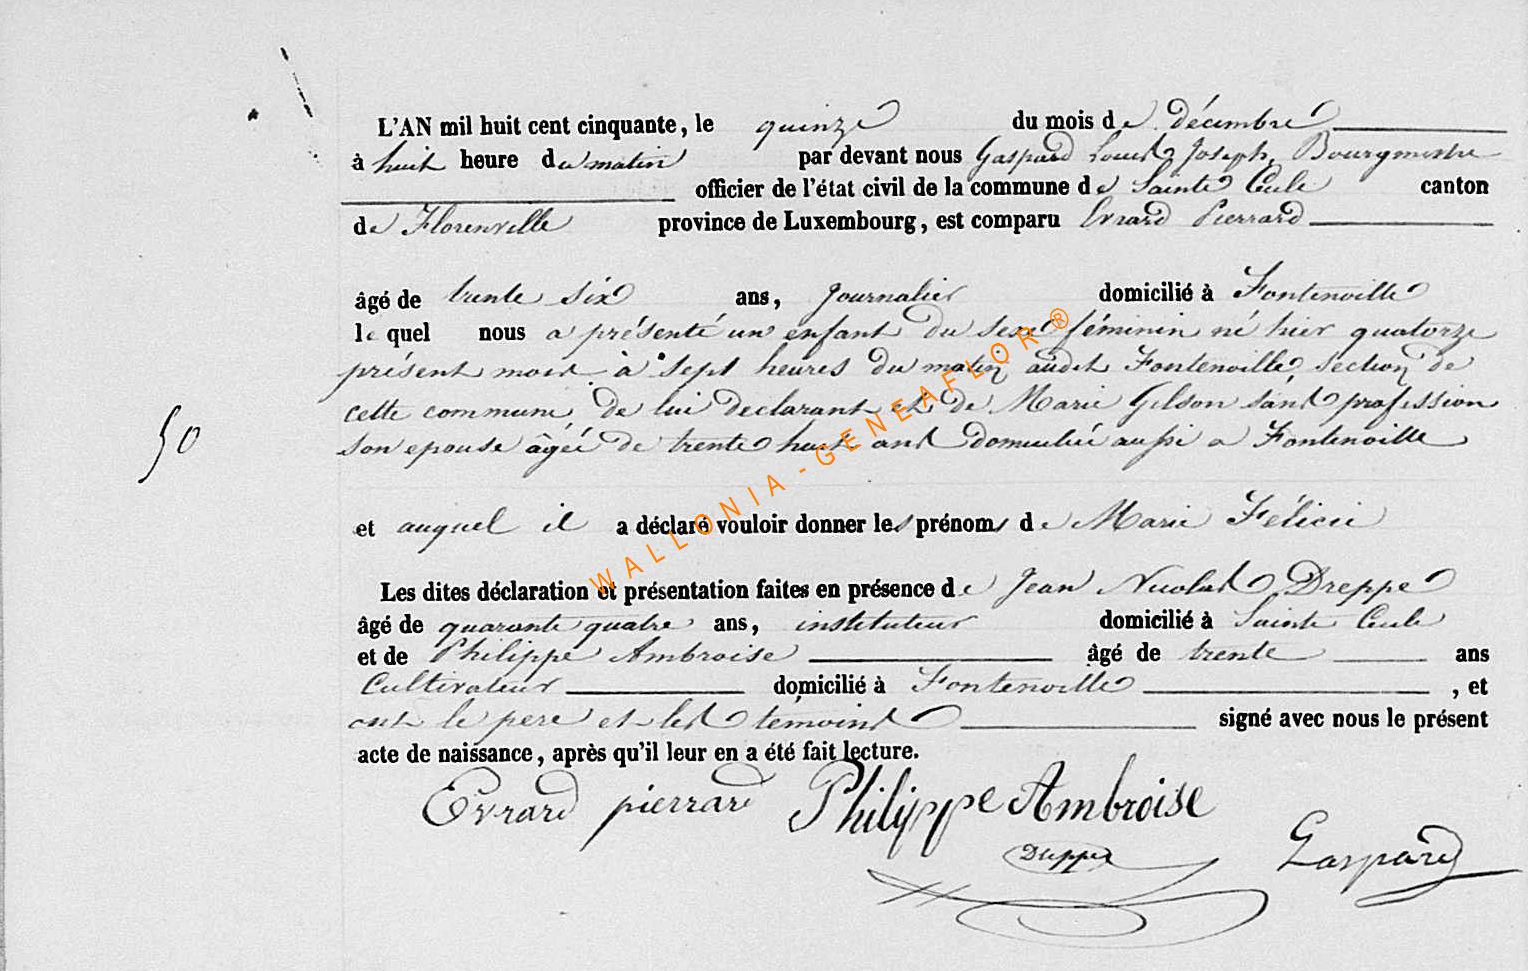 L'AN mil huit cent cinquante, le quinze du mois de décembre
à huit heure du matin par devant nous Gaspard Louis Joseph, Bourgmestre
officier de l'état civil de la commune de Sainte Cecile canton
de Florenville province de Luxembourg, est comparu Evrard Pierrard
âgé de trente six ans, journalier domicilié à Fontenoille
le quel nous a présenté un enfant du sexe féminin né hier quatorze
présent mois à sept heures du matin audit Fontenoille, section de
cette commune, de lui declarant et de Marie Gilson sans profession
50
son epouse âgée de trente huit ans domiciliée aussi a Fontenoille
et auquel il a déclaré vouloir donner les prénoms de Marie Félicie
Les dites déclaration et présentation faites en présence de Jean Nicolas Dreppe
âgé de quarante quatre ans, instituteur domicilié à Sainte Cecile
et de Philippe Ambroise âgé de trente ans
Cultivateur domicilié à Fontenoille , et
ont le pere et les témoins signé avec nous le présent
acte de naissance, après qu'il leur en a été fait lecture.
Evrard pierrard Philippe Ambroise
Dreppe Gaspard
WALLONIA - GENEAFLOR ®